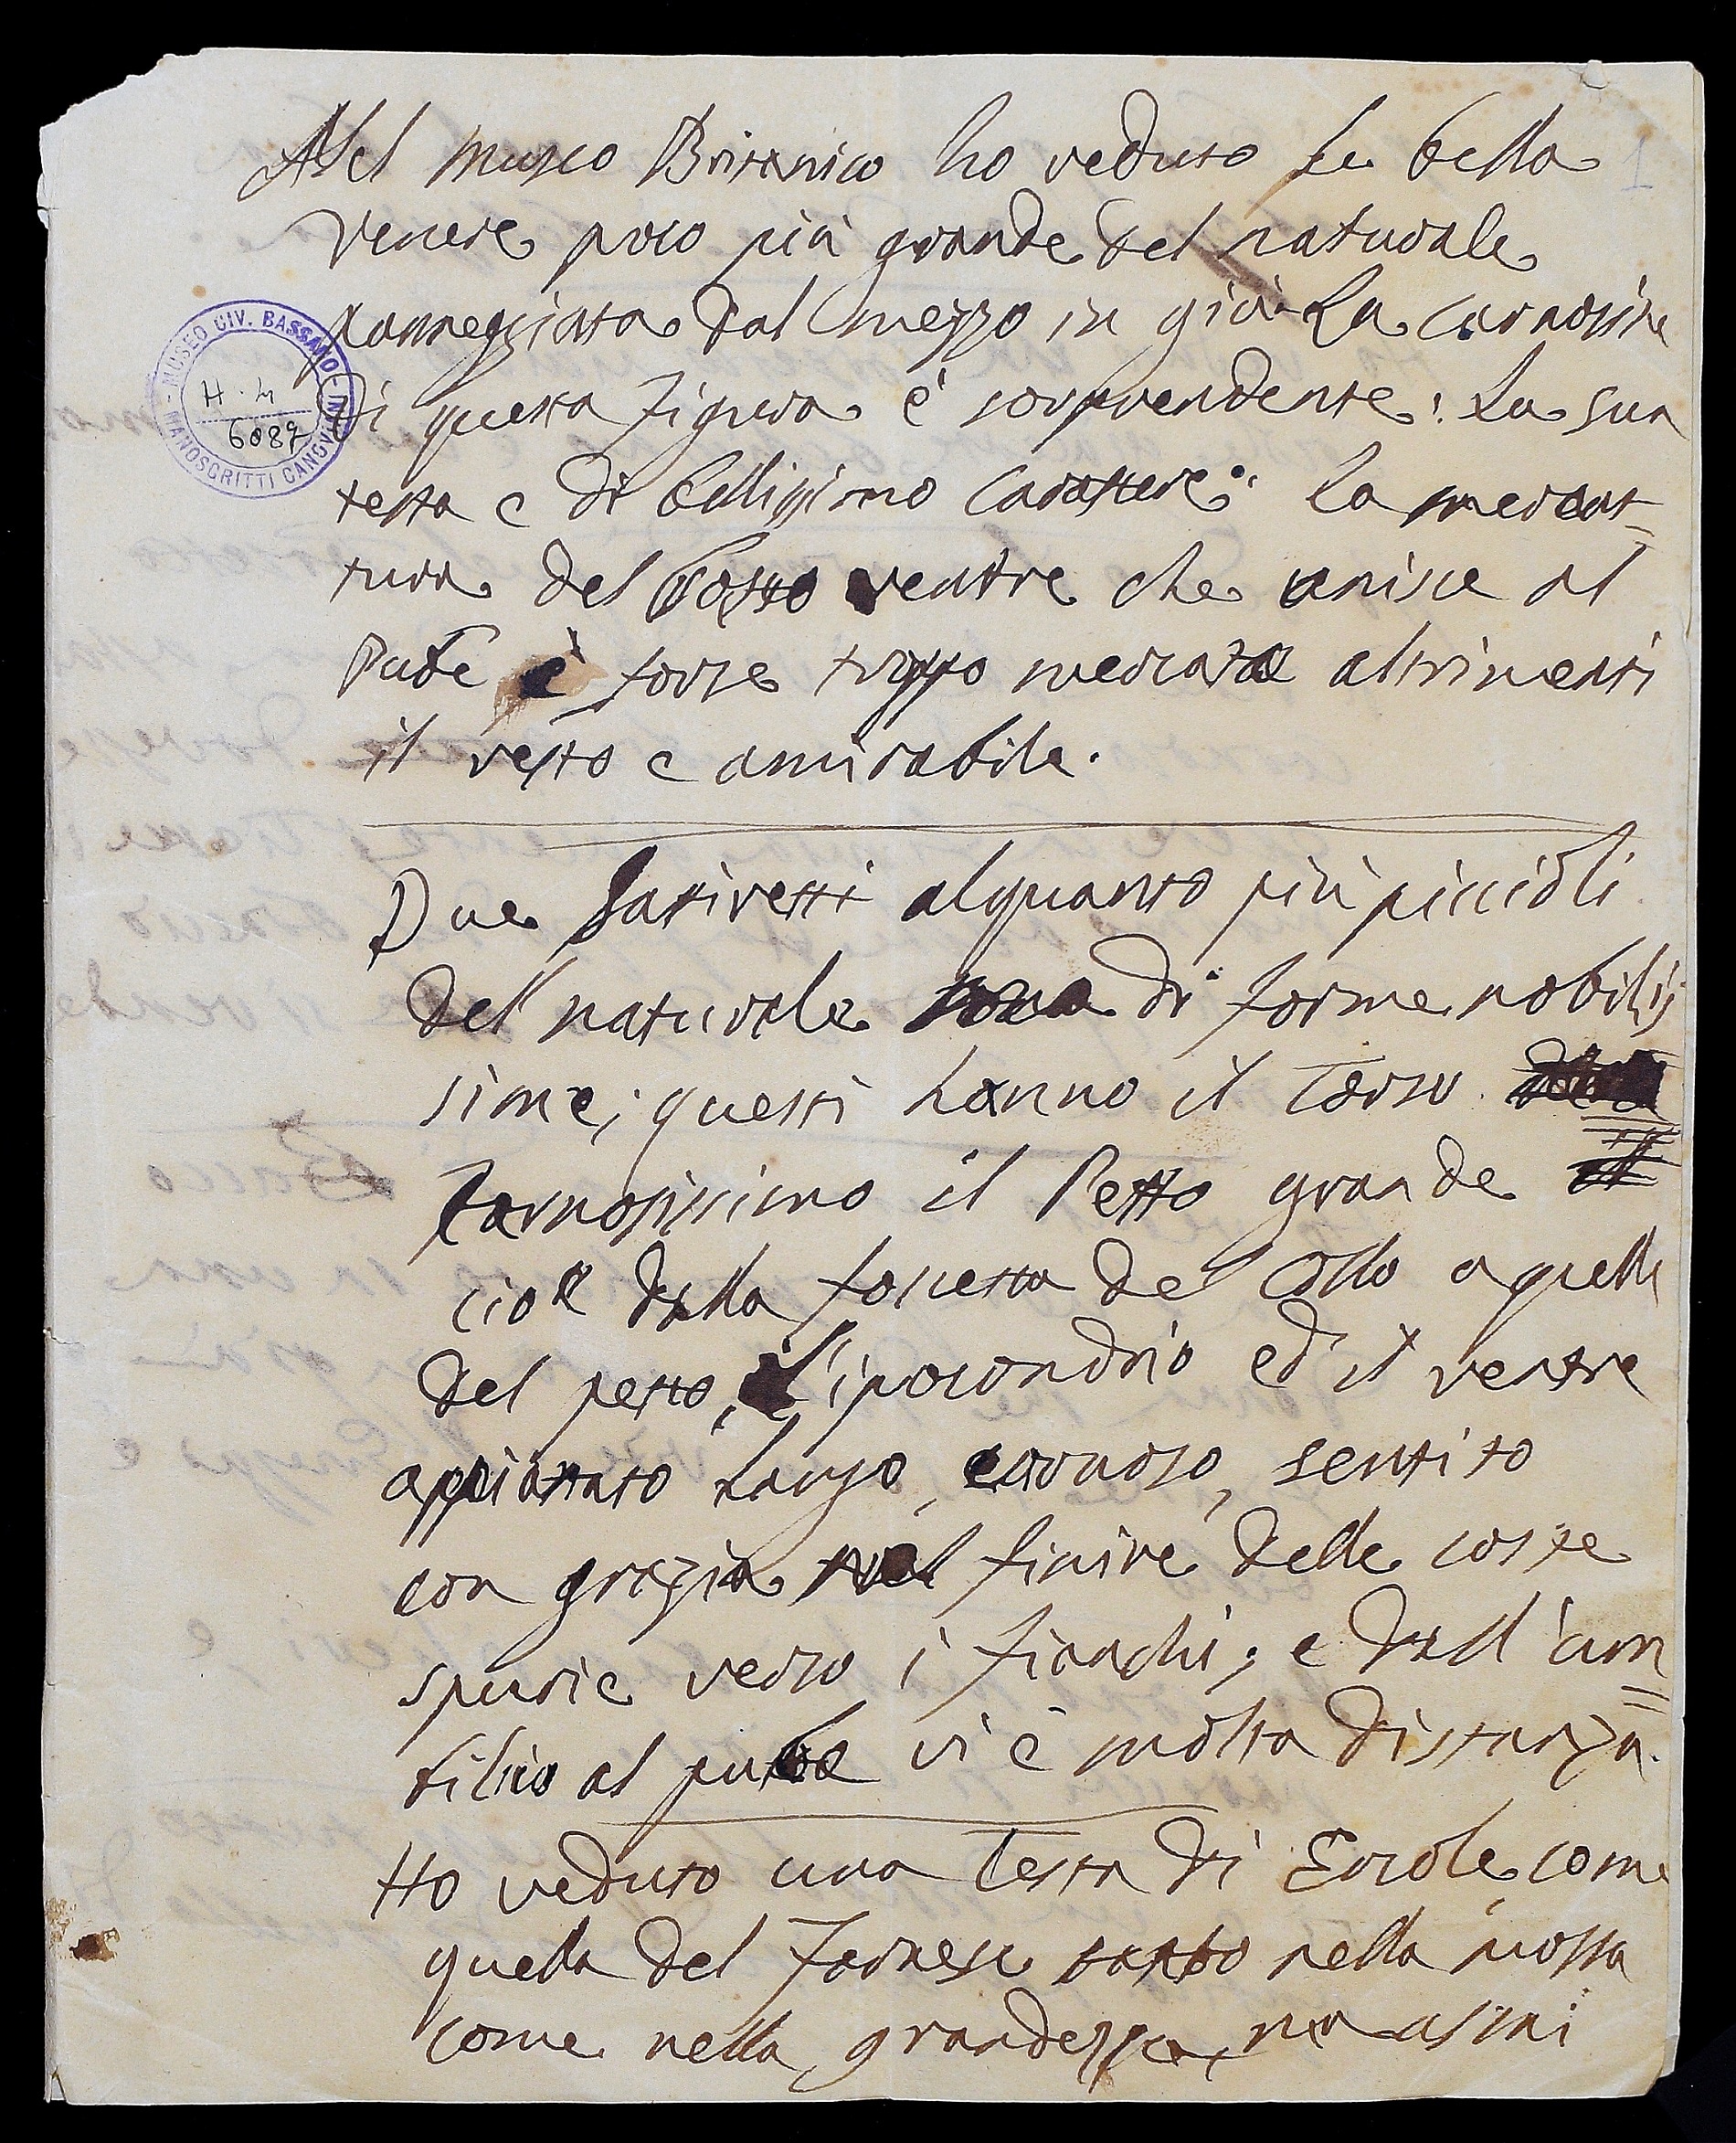 Nel Museo Britanico ho veduto la bella
Venere poco più grande del naturale
panneggiata dal mezzo in giù. La carnosità
di questa figura è sorprendente: La sua
testa e di bellissimo carattere: La mercat=
tura del basso ventre che unisce al
Pube è forse troppo mercata altrimenti
il resto e amirabile.
Due Satiretti alquanto più piccioli
del naturale di forme nobilis
sime; questi hanno il Torso
Carnosissimo il Petto grande il
cioè dalla forcetta del Collo a quella
del petto, l'ipocondrio ed il ventre
appianato largo, carnoso, sentito
con grazia nel finire delle coste
spurie verso i fianchi; e dall'um=
bilico al pube vi è molta distanza.
Ho veduto una Testa di Ercole, come
quella del Farnese tanto nella mossa
come nella grandezza, ma assai
1
MUSEO CIV. BASSANO - MANOSCRITTI CANOVIANI
H. 4
6087